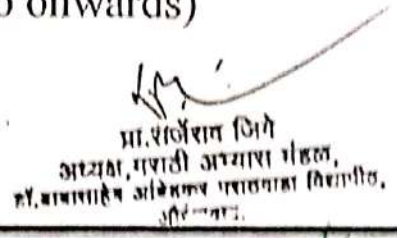 onwards)
प्रा.सर्जेराव जिगे
अध्यक्ष,मराठी अभ्यास मंडळ,
डॉ.बाबासाहेब आंबेडकर मराठवाडा विद्यापीठ,